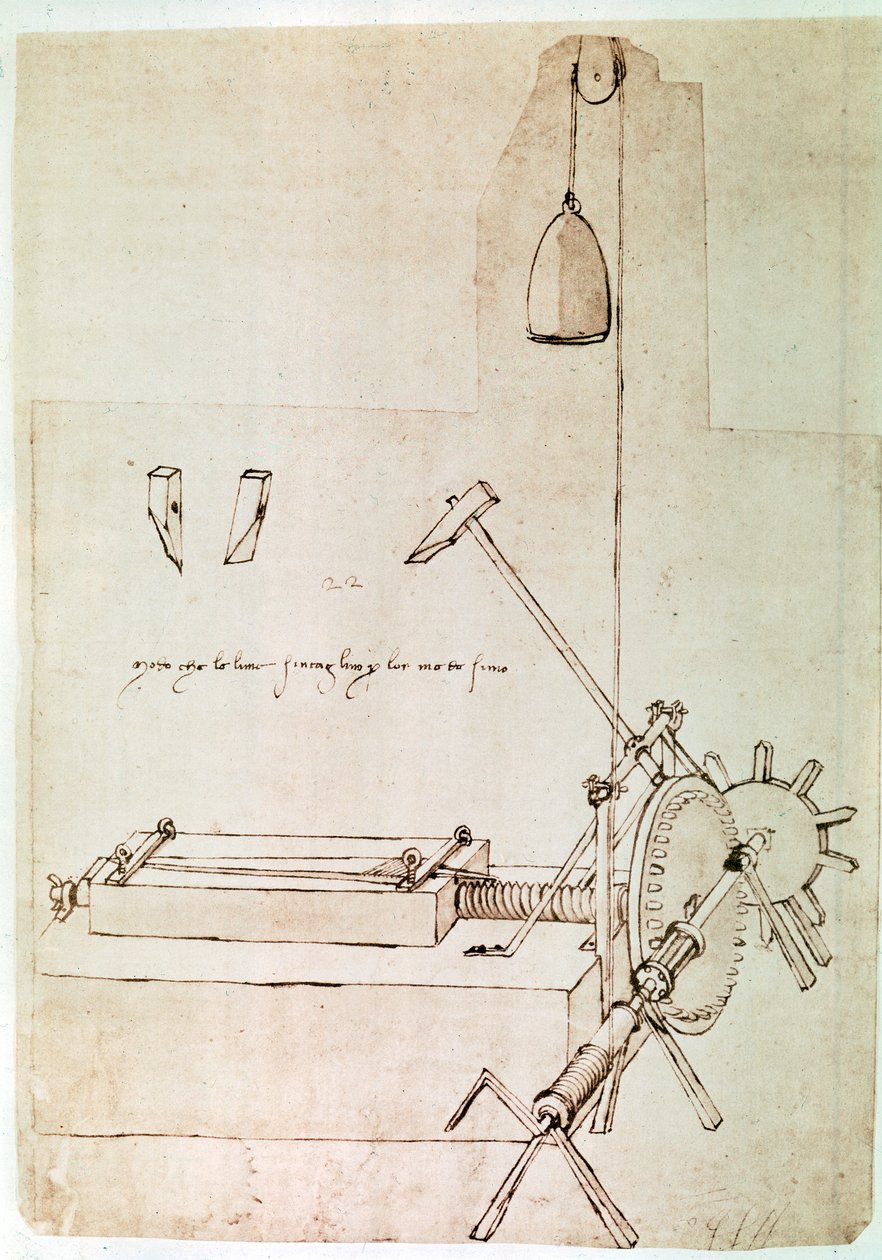 22
Modo che le lime s'intaglino p lor medesimo